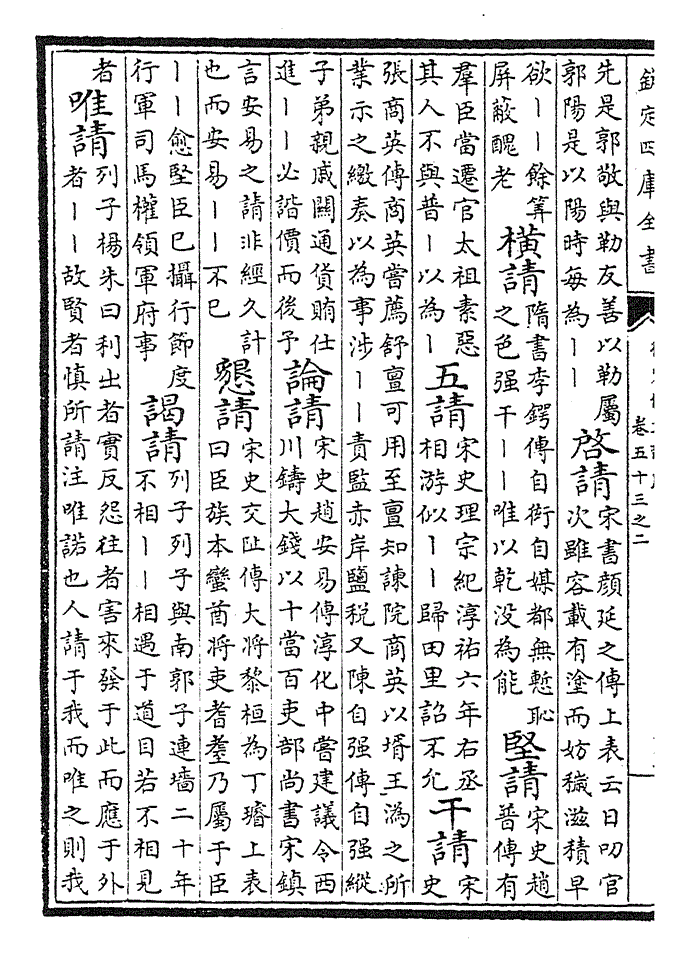 欽定四庫全書
卷五十三之二
先是郭敬與勒友善以勒屬
郭陽是以陽時每為丨丨
啓請
宋書顏延之傳上表云日叨官
次雖容載有塗而妨穢滋積早
欲丨丨餘筭
屏蔽醜老
橫請
隋書李鍔傳自衒自媒都無慙恥
之色强干丨丨唯以乾没為能
堅請
宋史趙
普傳有
羣臣當遷官太祖素惡
其人不與普丨以為丨
五請
宋史理宗紀淳祐六年右丞
相游似丨丨歸田里詔不允
干請
宋
史
張商英傳商英嘗薦舒亶可用至亶知諫院商英以壻王溈之所
業示之繳奏以為事涉丨丨責監赤岸鹽税又陳自强傳自强縱
子弟親戚關通貨賄仕
進丨丨必諧價而後予
論請
宋史趙安易傳淳化中嘗建議令西
川鑄大錢以十當百吏部尚書宋鎮
言安易之請非經久計
也而安易丨丨不已
懇請
宋史交阯傳大將黎桓為丁璿上表
曰臣族本蠻酋將吏耆耋乃屬于臣
丨丨愈堅臣已攝行節度
行軍司馬權領軍府事
謁請
列子列子與南郭子連墻二十年
不相丨丨相遇于道目若不相見
者
唯請
列子楊朱曰利出者實反怨往者害來發于此而應于外
者丨丨故賢者慎所請注唯諾也人請于我而唯之則我